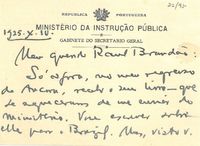 22/93
REPUBLICA PORTUGUESA
MINISTÉRIO DA INSTRUÇÃO PÚBLICA
GABINETE DO SECRETARIO GERAL
1925.X.10
Meu querido Raul Brandão:
Só agora, no meu regresso
de , recebo o seu livro — que
se esqueceram de me enviar do
ministério. Vou escrever sobre
elle para o Brazil. Mas, visto v.